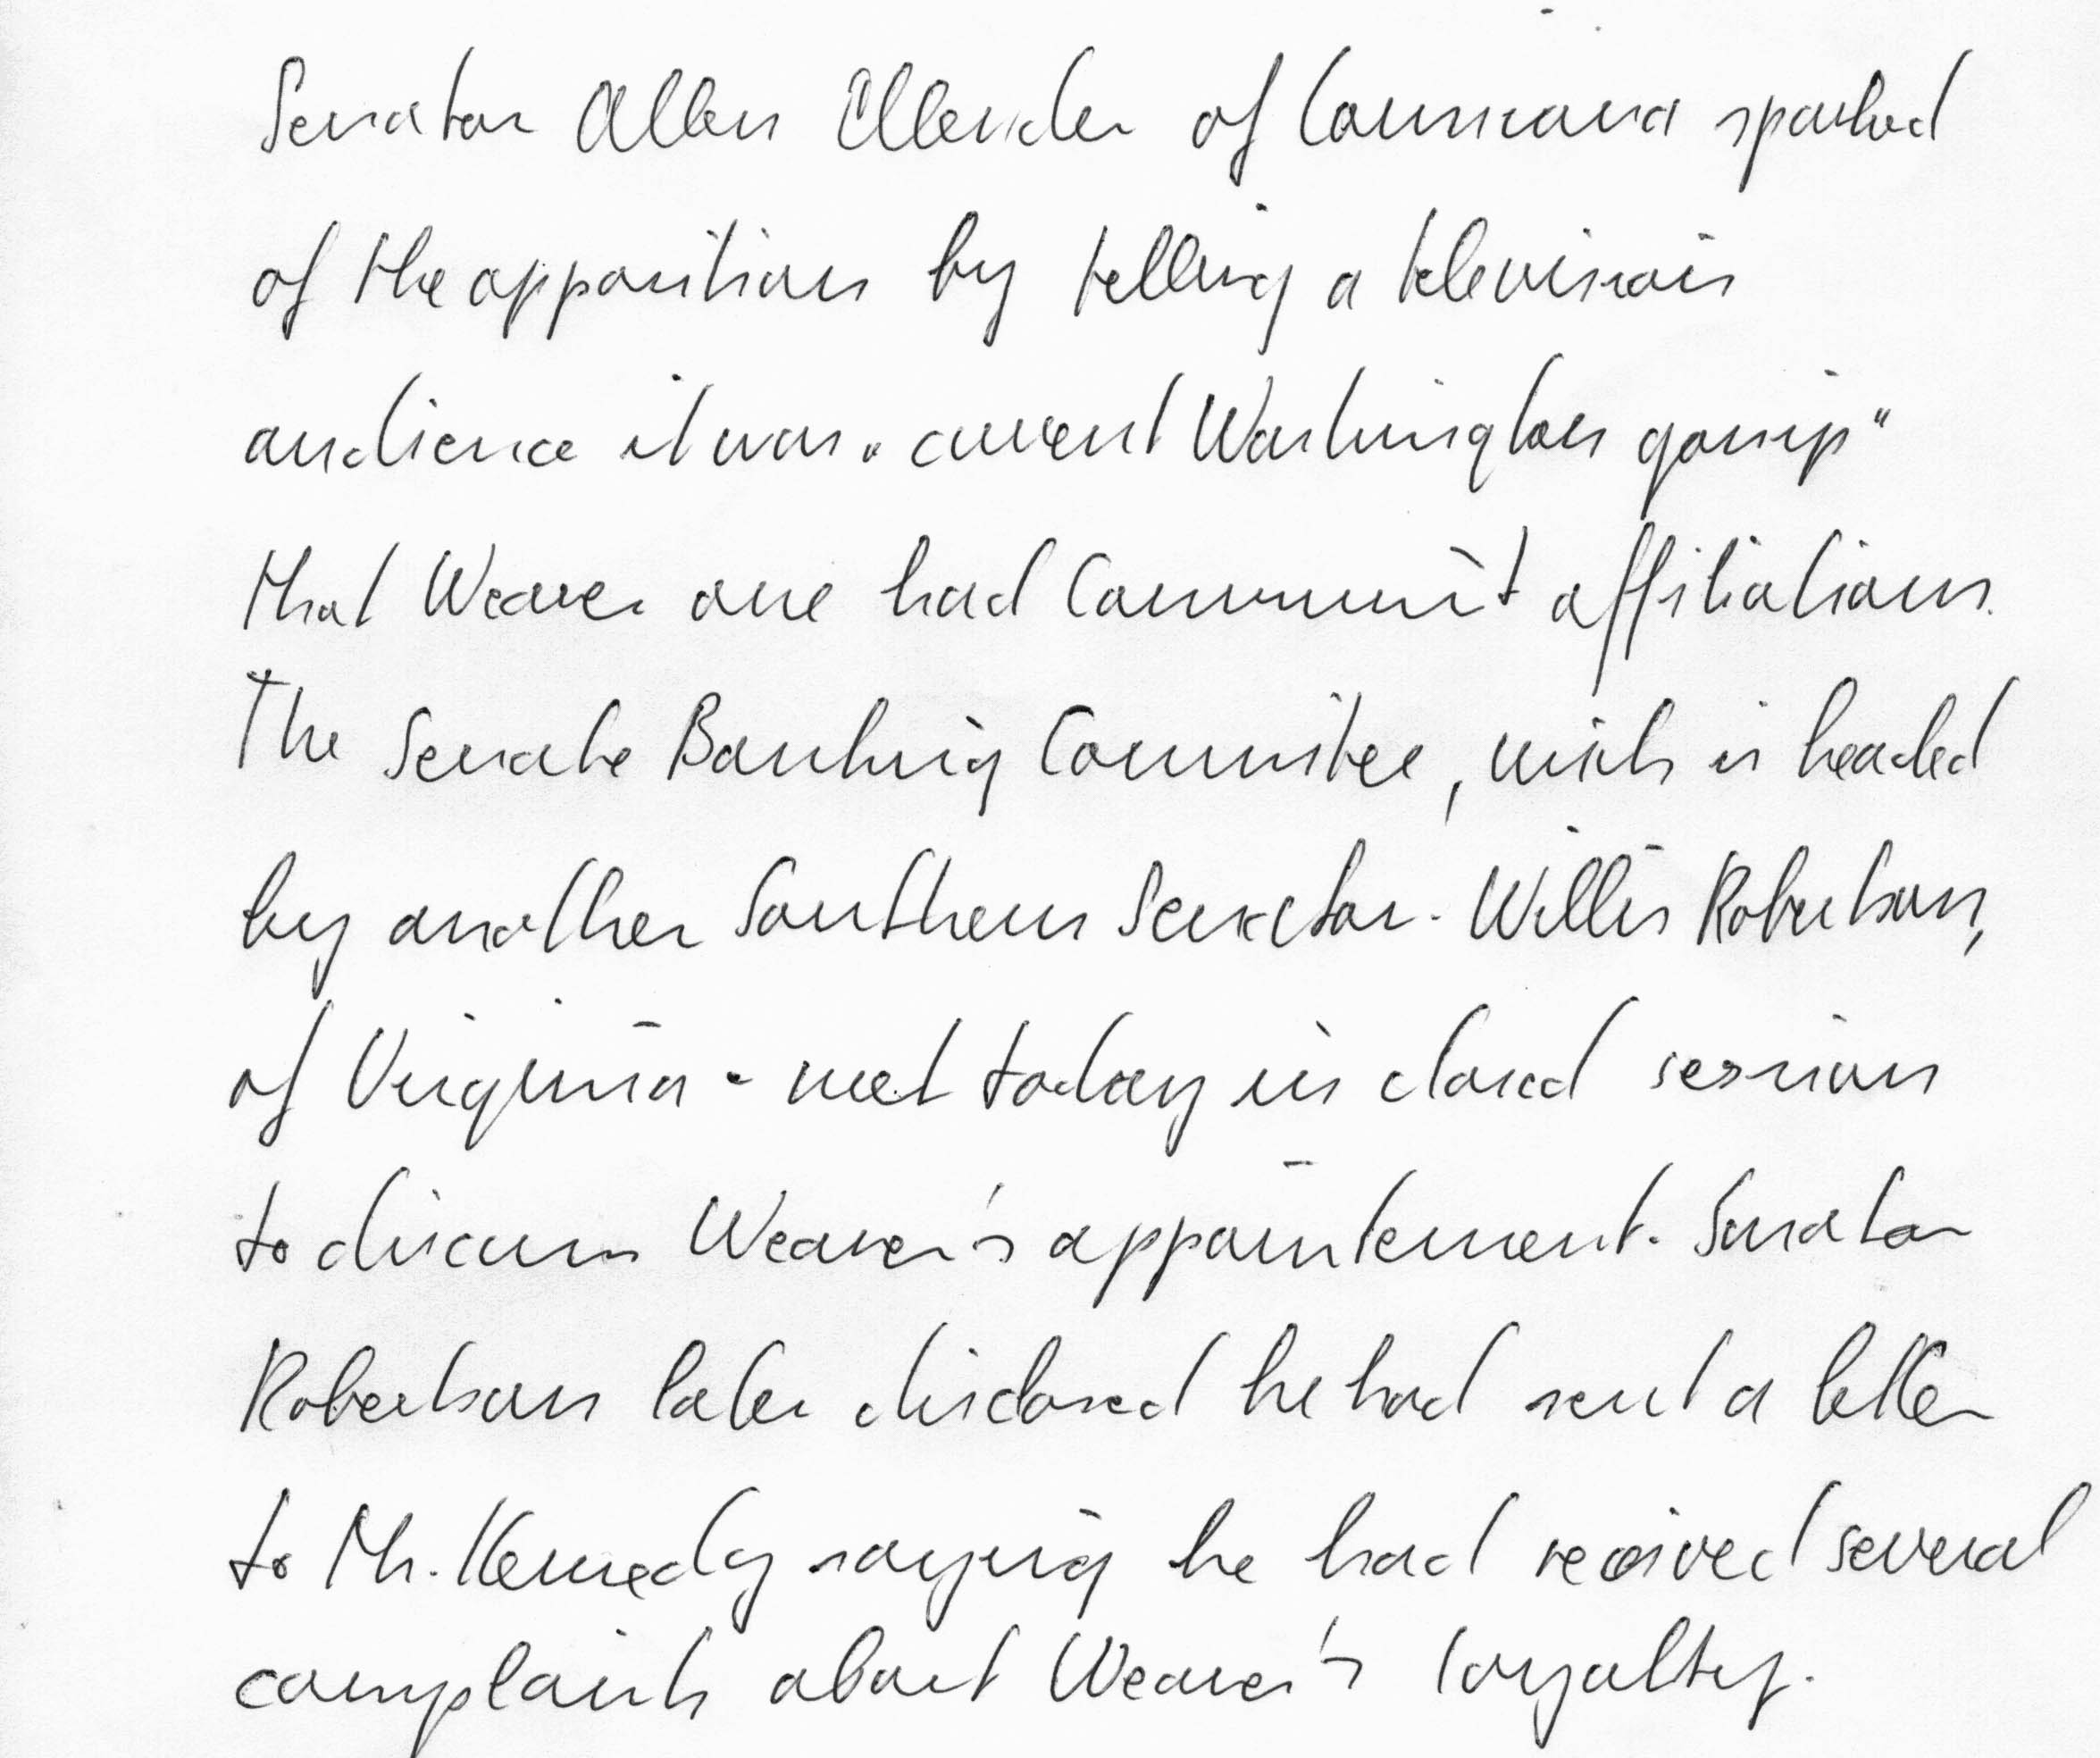 Senator Allen Ellender of Louisiana sparked
of the opposition by telling a television
audience it was "current Washington gossip"
that Weaver one had Communist affiliations.
The Senate Banking Commitee, wich is headed
by another Southern Senator - Willis Robertson,
of Virginia - met today in closed session
to discuss Weaver's appointement. Senator
Robertson later disclosed he had sent a letter
to Mr. Kennedy saying he had received several
complaints about Weaver's loyalty.